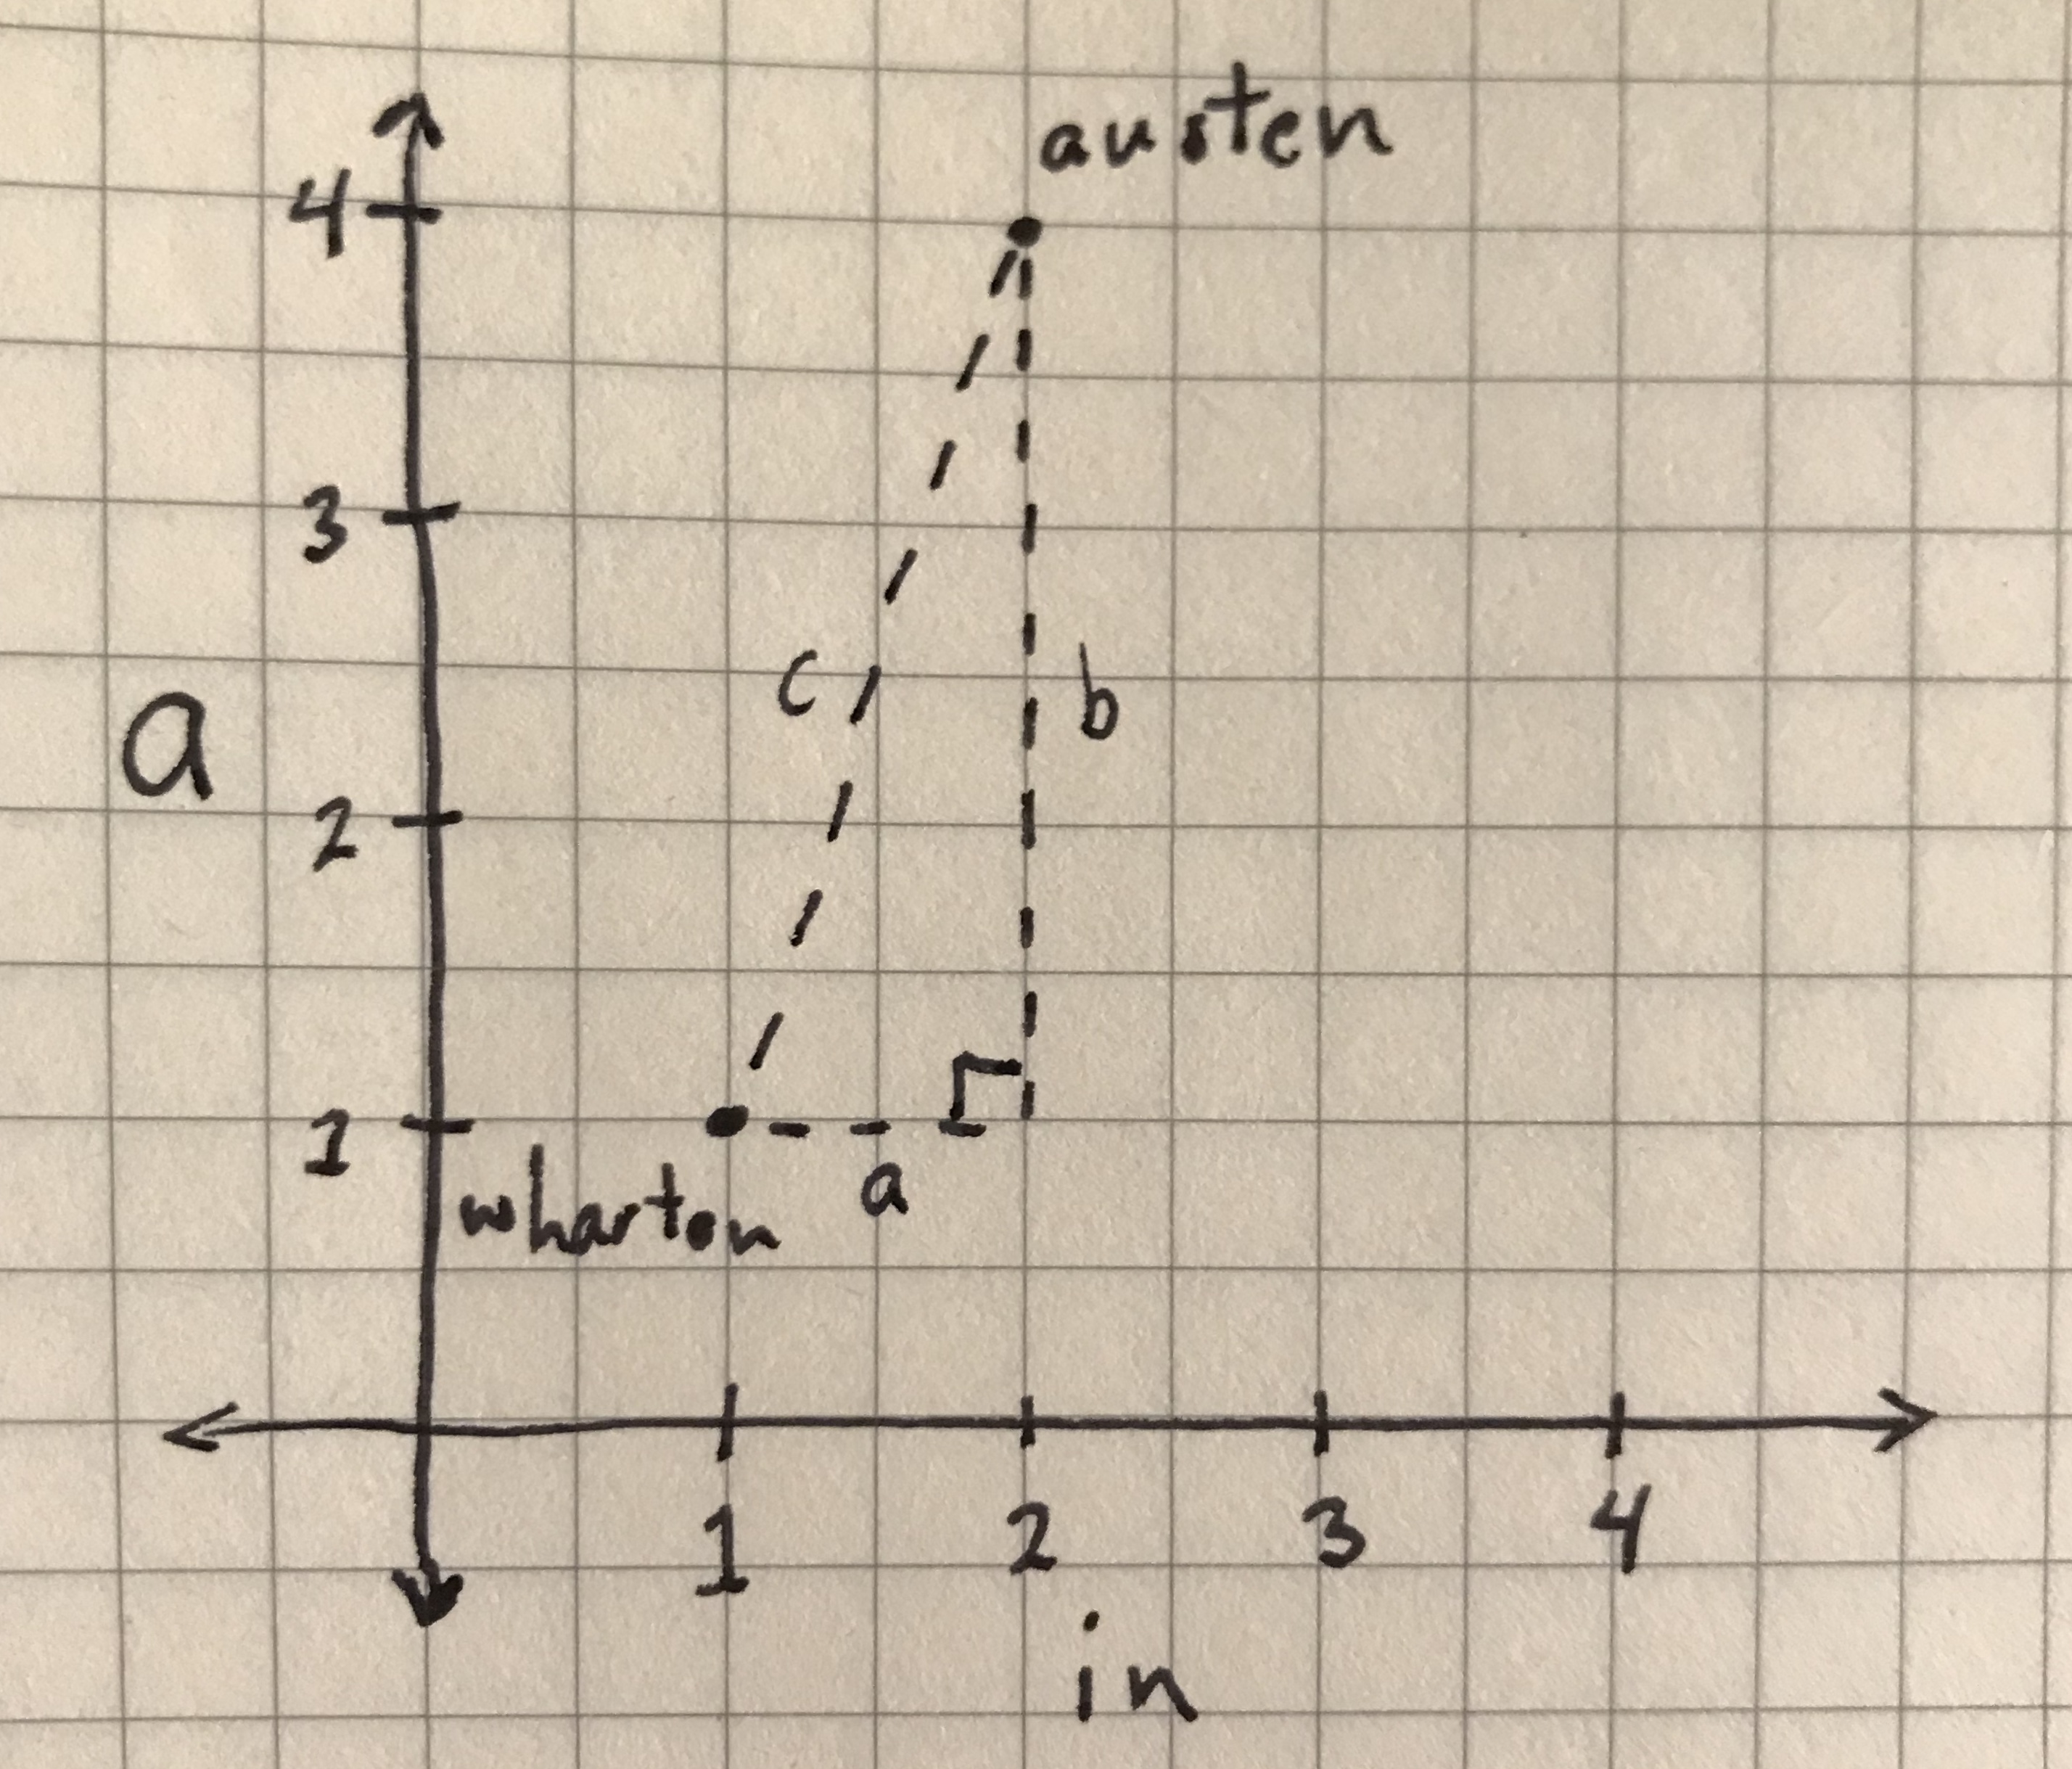 austen
4
3
c
b
a
2
1
a
wharton
1 2 3 4
in